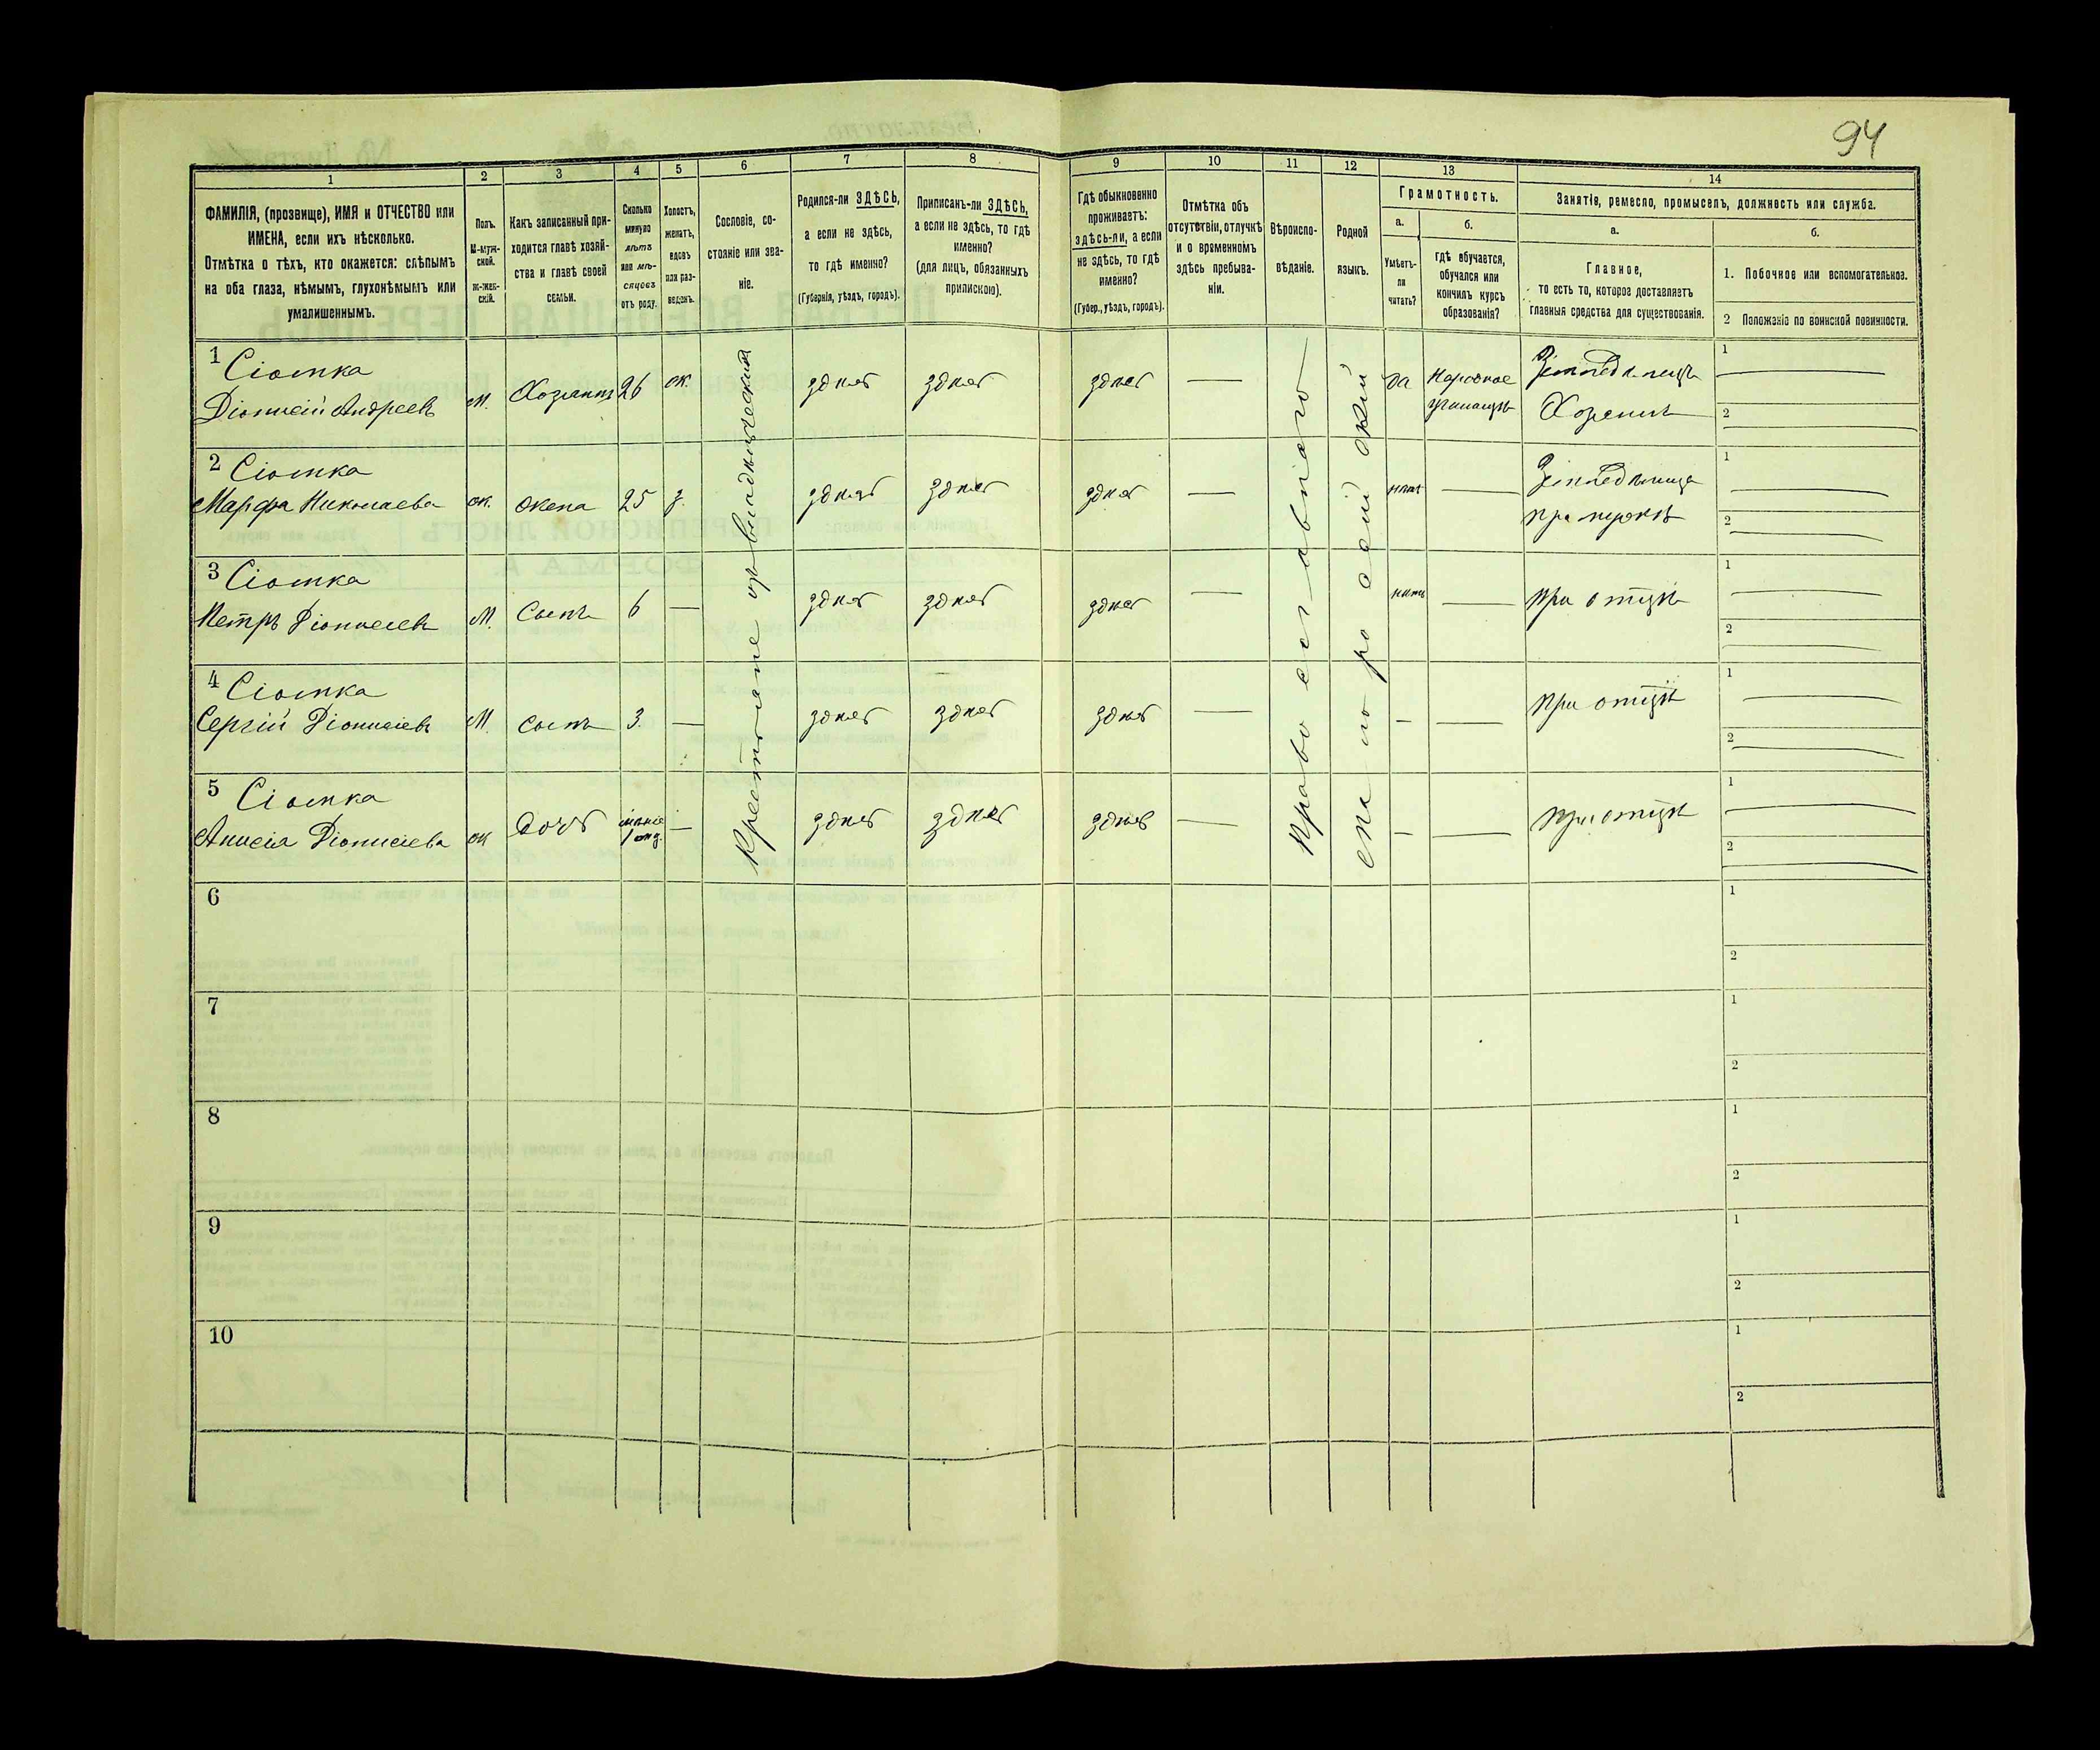 94
1 2 3 4 5 6 7 8 9 10 11 12 13 14
ФАМИЛІЯ, (прозвище), ИМЯ и ОТЧЕСТВО или
ИМЕНА, если ихъ нѣсколько.
Отмѣтка о тѣхъ, кто окажется: слѣпымъ
на оба глаза, нѣмымъ, глухонѣмымъ или
умалишеннымъ.
Полъ.
М-муж-
ской.
Ж-жен-
скій.
Какъ записанный при-
ходится главѣ хозяй-
ства и главѣ своей
семьи.
Сколько
минуло
лѣтъ
или мѣ-
сяцевъ
отъ роду.
Холостъ,
женатъ,
вдовъ
или раз-
веденъ.
Сословіе, со-
стояніе или зва-
ніе.
Родился-ли ЗДѢСЬ,
а если не здѣсь,
то гдѣ именно?
(Губернія, уѣздъ, городъ).
Приписанъ-ли ЗДѢСЬ,
а если не здѣсь, то гдѣ
именно?
(для лицъ, обязанныхъ
припискою).
Гдѣ обыкновенно
проживаетъ:
здѣсь-ли, а если
не здѣсь, то гдѣ
именно?
(Губер., уѣздъ, городъ).
Отмѣтка объ
отсутствіи, отлучкѣ
и о временномъ
здѣсь пребыва-
ніи.
Вѣроиспо-
вѣданіе.
Родной
языкъ.
Грамотность.
а.
Умѣетъ-
ли
читать?
б.
гдѣ обучается,
обучался или
кончилъ курсъ
образованія?
Занятіе, ремесло, промыселъ, должность или служба.
а.
Главное,
то есть то, которое доставляетъ
главныя средства для существованія.
б.
1. Побочное или вспомогательное.
2 Положеніе по воинской повинности.
1 Сіомка
Діонисій Андреевъ М. Хозяинъ 26 ж. здѣсь здѣсь здѣсь — да Народное
училище
Земледѣлецъ
Хозяинъ
1
2
2 Сіомка
Марфа Николаева ж. жена 25 з. здѣсь здѣсь здѣсь — нѣтъ —
Земледѣлица
при мужѣ
1
2
3 Сіомка
Петръ Діонисіевъ М. Сынъ 6 — здѣсь здѣсь здѣсь — нѣтъ — при отцѣ
1
2
4 Сіомка
Сергій Діонисіевъ М. сынъ 3. — здѣсь здѣсь здѣсь — — — при отцѣ
1
2
5 Сіомка
Анисія Діонисіева ж дочь менѣе
1 год. — здѣсь здѣсь здѣсь — — — при отцѣ
1
2
Крестьяне
Православнаго
6
1
2
7
1
2
8
1
2
9
1
2
10
1
2